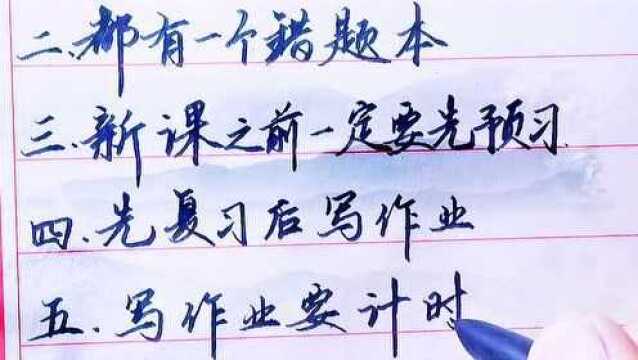 二、都有一个错题本
三、新课之前一定要先预习.
四、先复习后写作业
五、写作业要计时